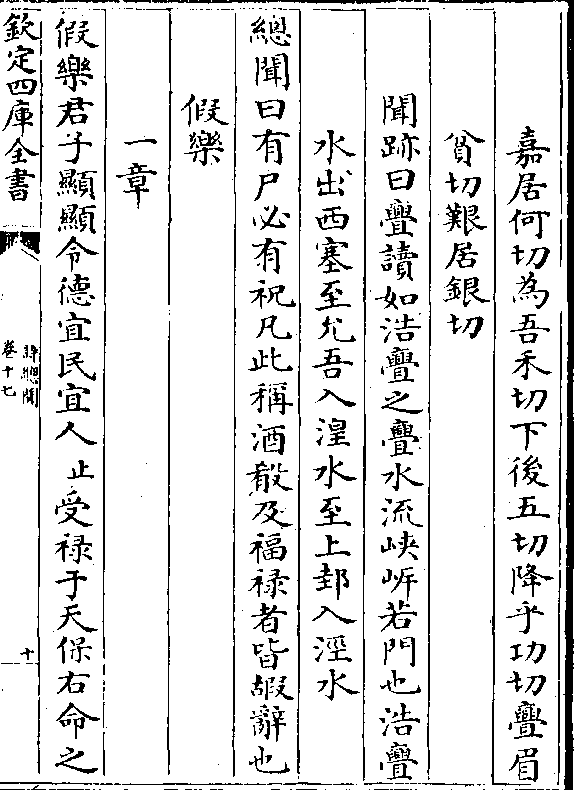 嘉居何切為吾禾切下後五切降乎功切亹眉
貧切艱居銀切
聞跡曰亹讀如浩亹之亹水流峽岸若門也浩亹
水出西塞至允吾入湟水至上邽入涇水
總聞曰有尸必有祝凡此稱酒殽及福禄者皆嘏辭也
假樂
一章
假樂君子顯顯令德宜民宜人止受禄于天保右命之
欽定四庫全書
詩總聞
卷十七
十